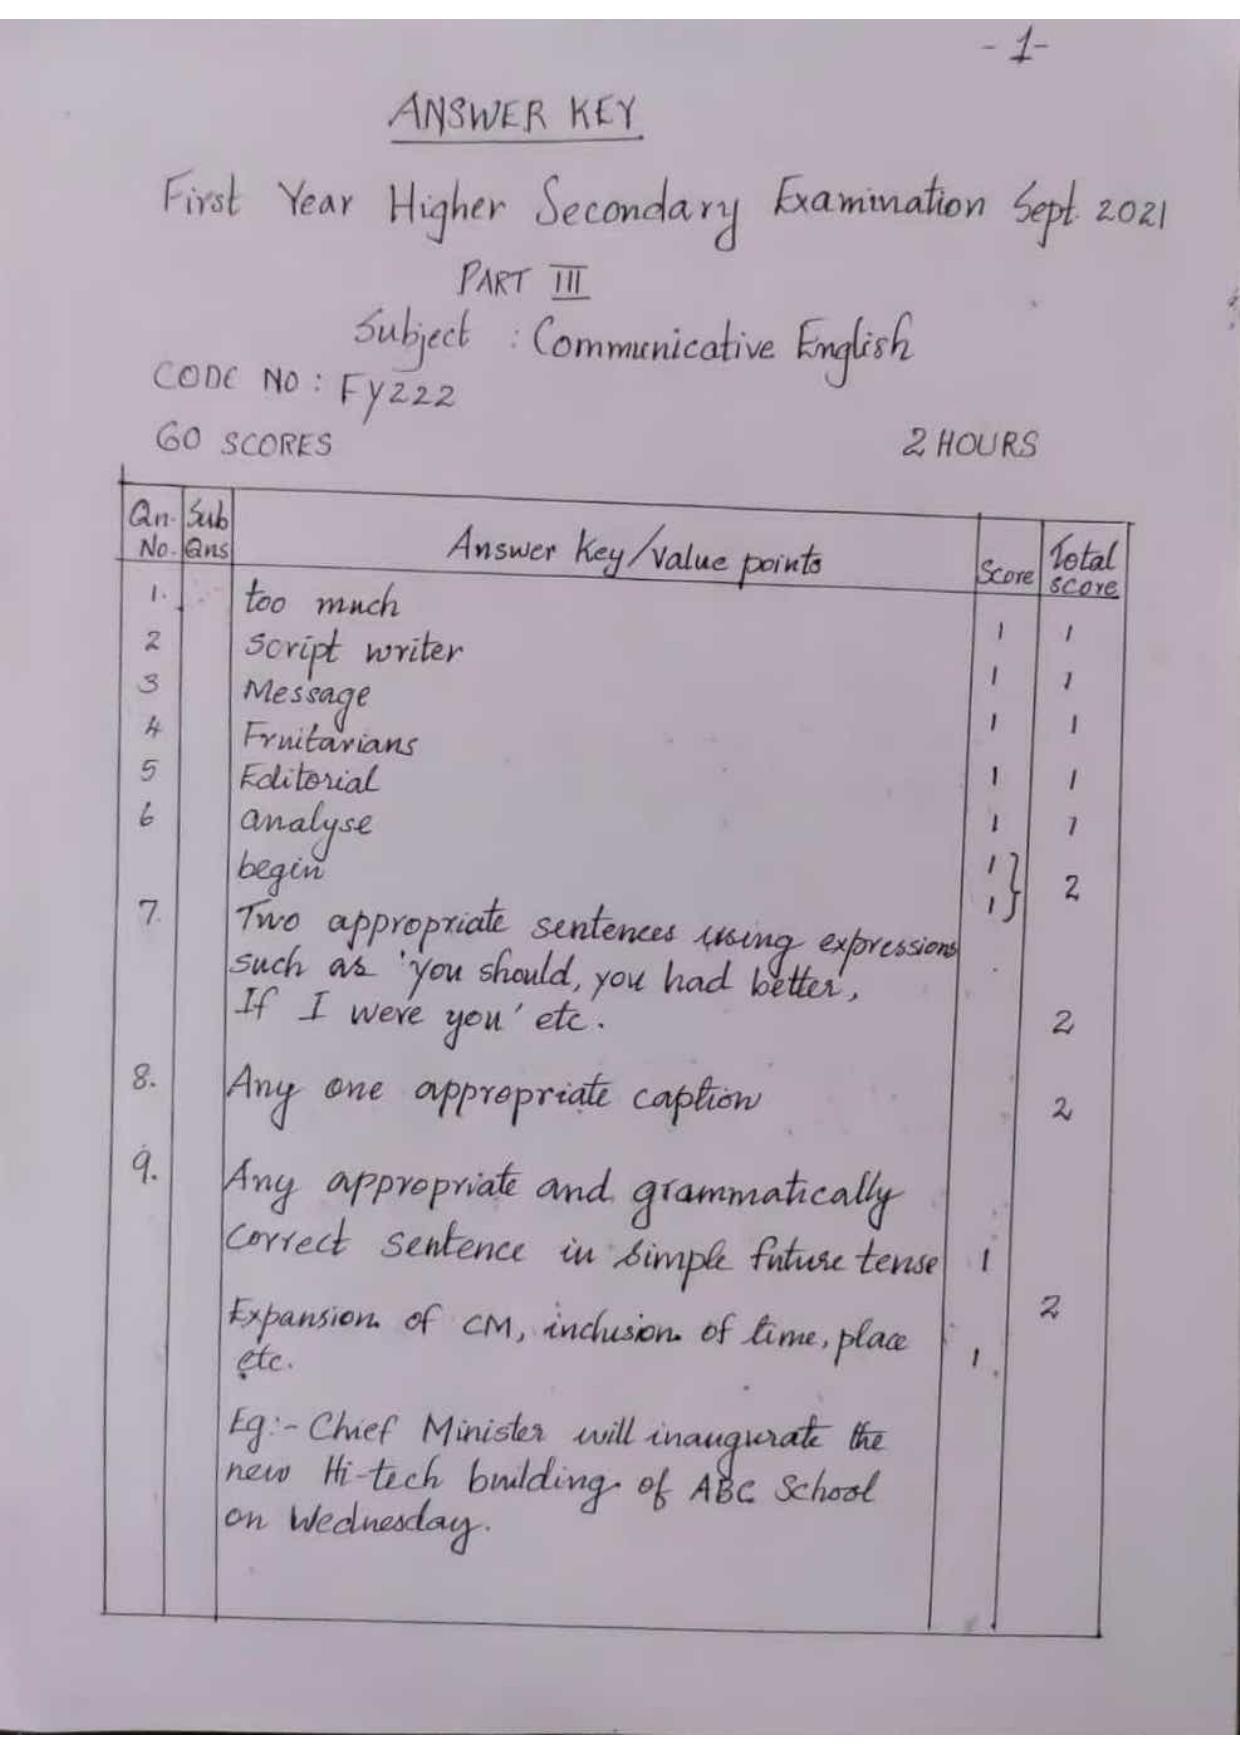 - 1-
ANSWER KEY
First Year Higher Secondary Examination Sept. 2021
PART III
Subject : Communicative English
CODE NO : FY222
60 SCORES 2 HOURS
Qn. No. Sub Qns Answer Key/Value points Score Total score
1. too much 1 1
2 Script writer 1 1
3 Message 1 1
4 Fruitarians 1 1
5 Editorial 1 1
6 analyse 1
begin 1 } 2
7. Two appropriate sentences using expressions
such as 'you should, you had better,
If I were you' etc. 2
8. Any one appropriate caption 2
9. Any appropriate and grammatically
correct sentence in simple future tense 1
2
Expansion of CM, inclusion of time, place 1
etc.
Eg:- Chief Minister will inaugurate the
new Hi-tech building of ABC School
on Wednesday.